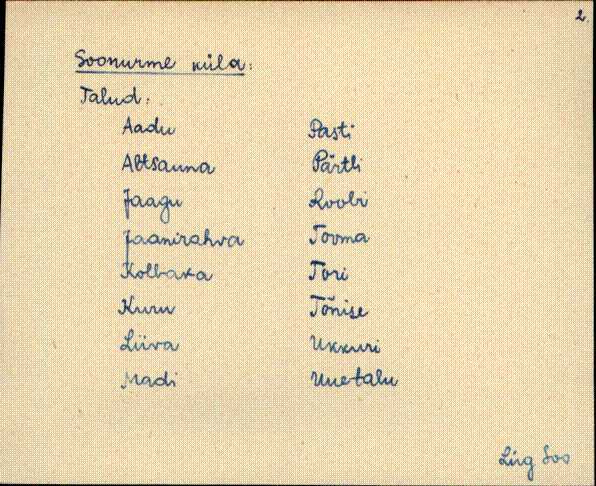 2.
Soonurme küla:
Talud:
Aadu Pasti
Altsauna Pärtli
Jaagu Roobi
Jaanirahva Tooma
Kolbaka Tori
Kuru Tõnise
Liiva Ukkuri
Madi Uuetalu
Lüg Soo